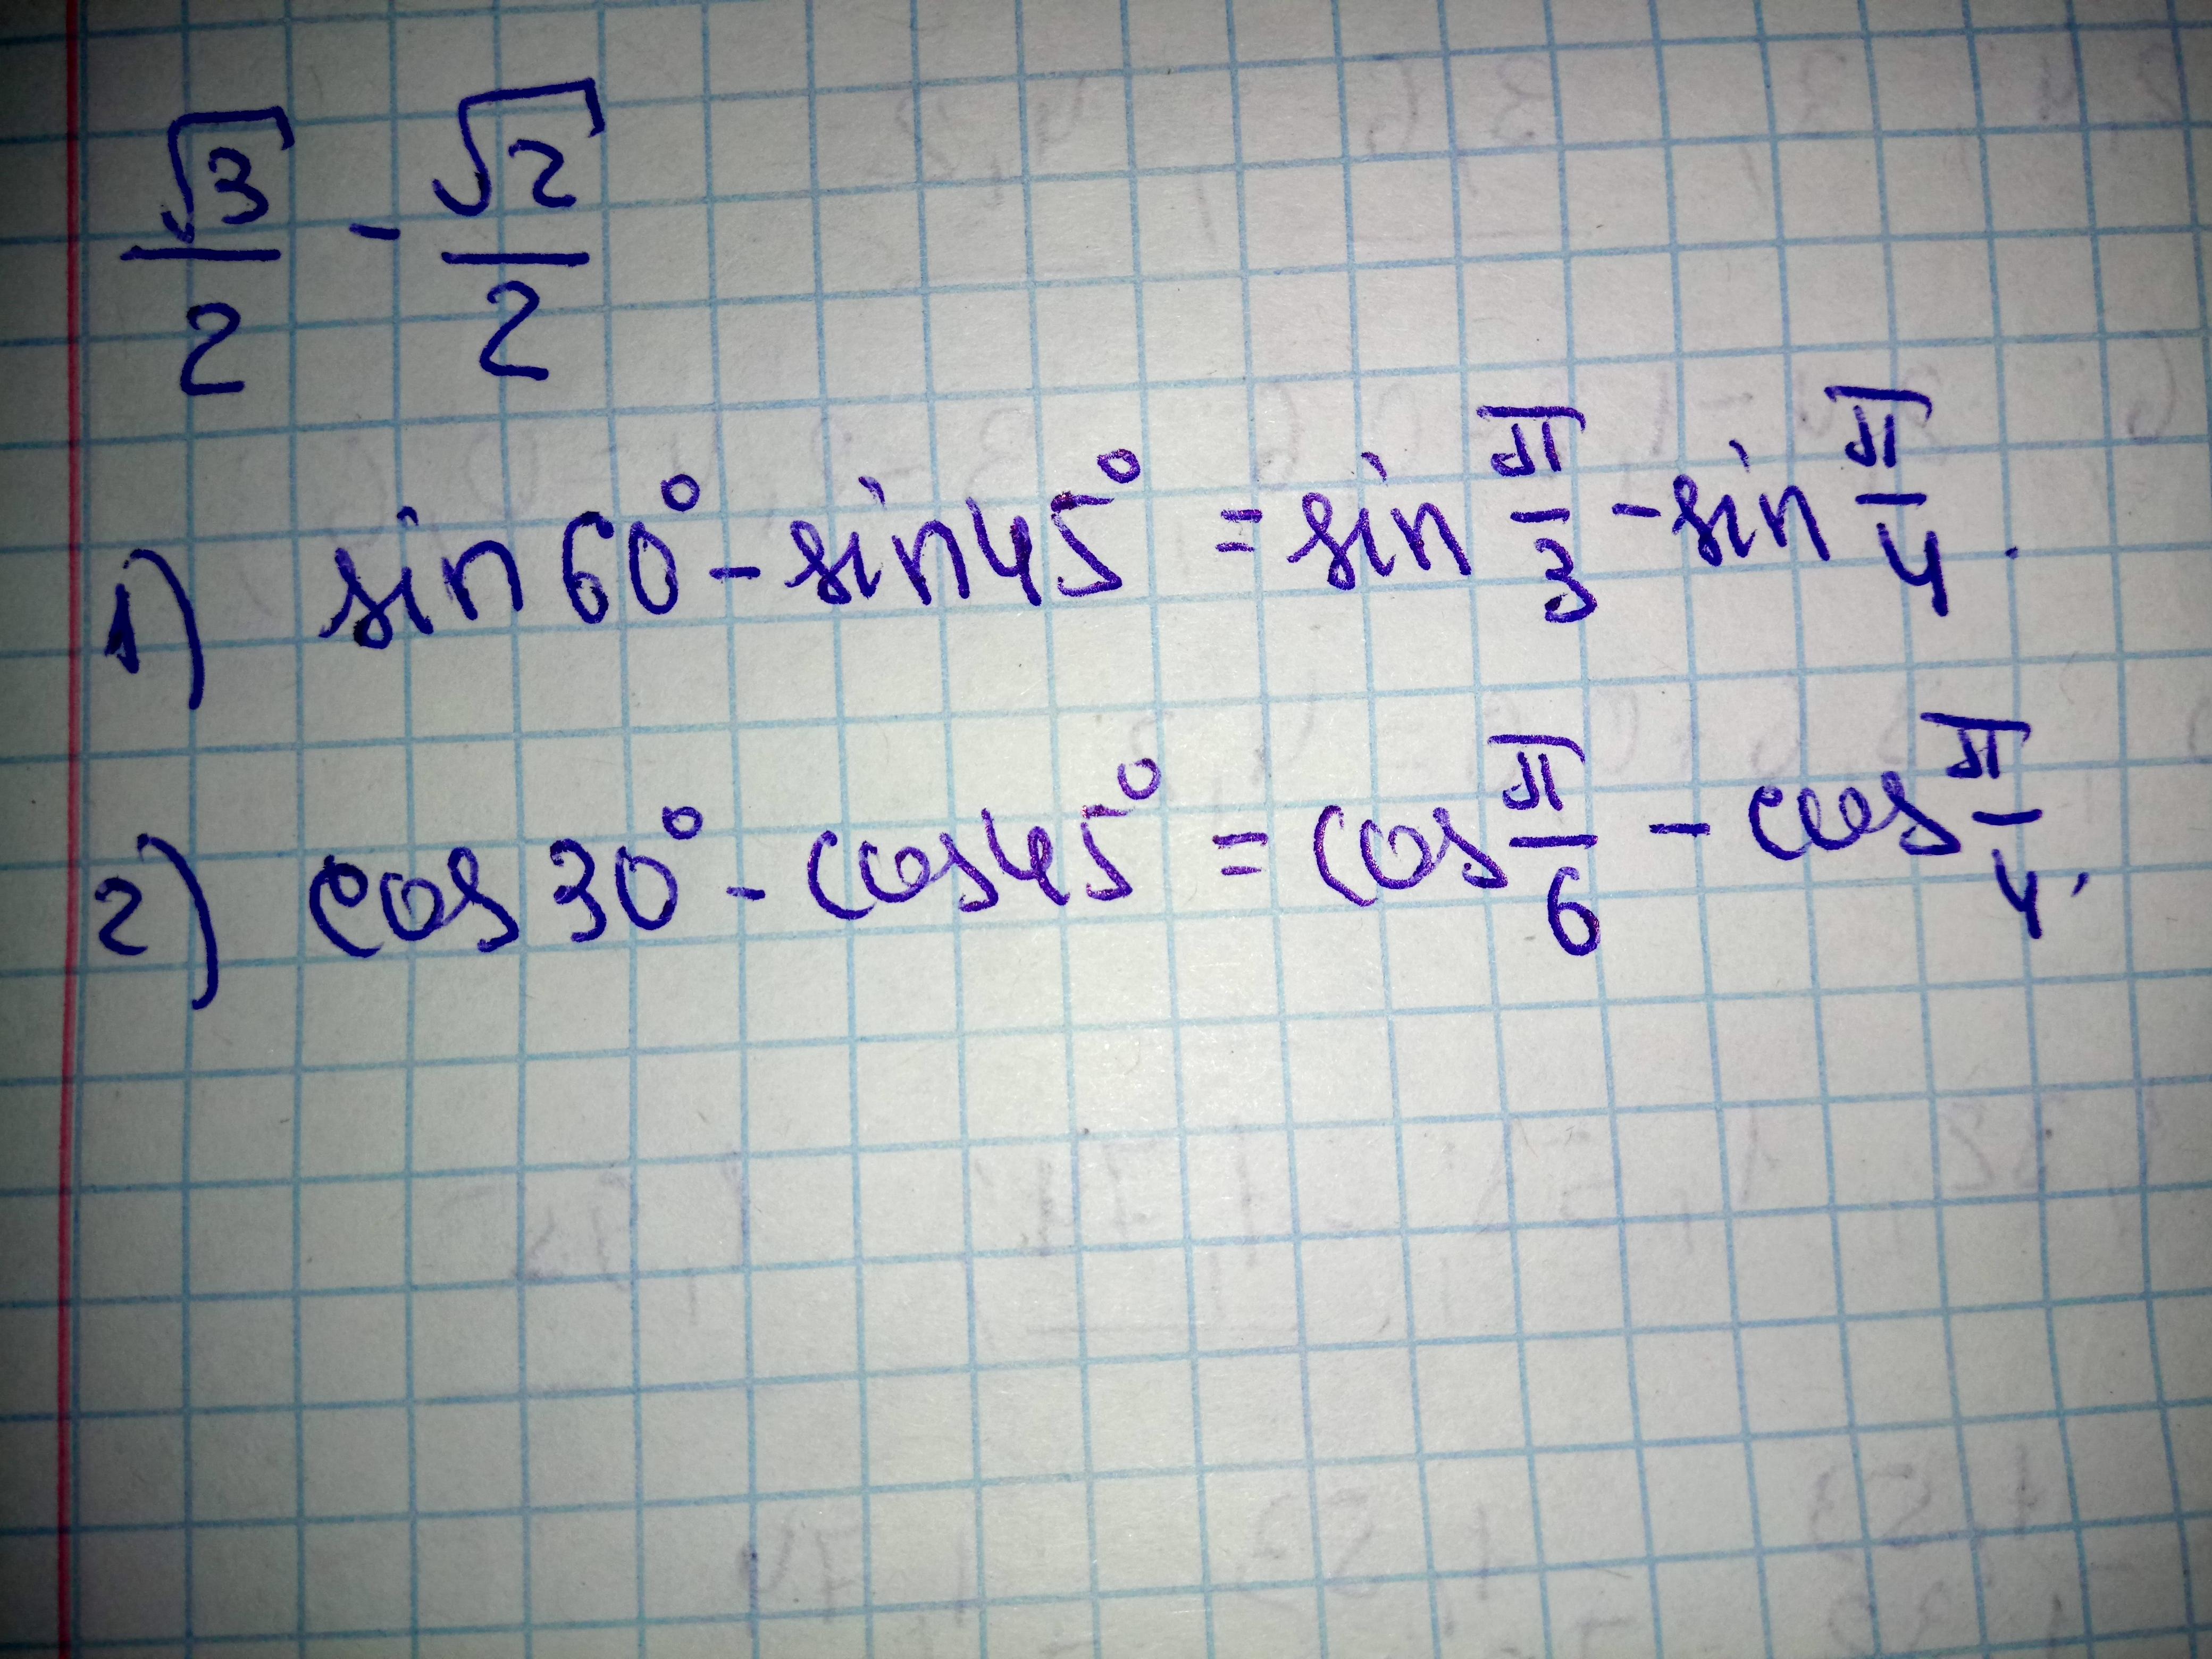 √3/2 - √2/2
1) sin 60° - sin 45° = sin π/3 - sin π/4.
2) cos 30° - cos 45° = cos π/6 - cos π/4.